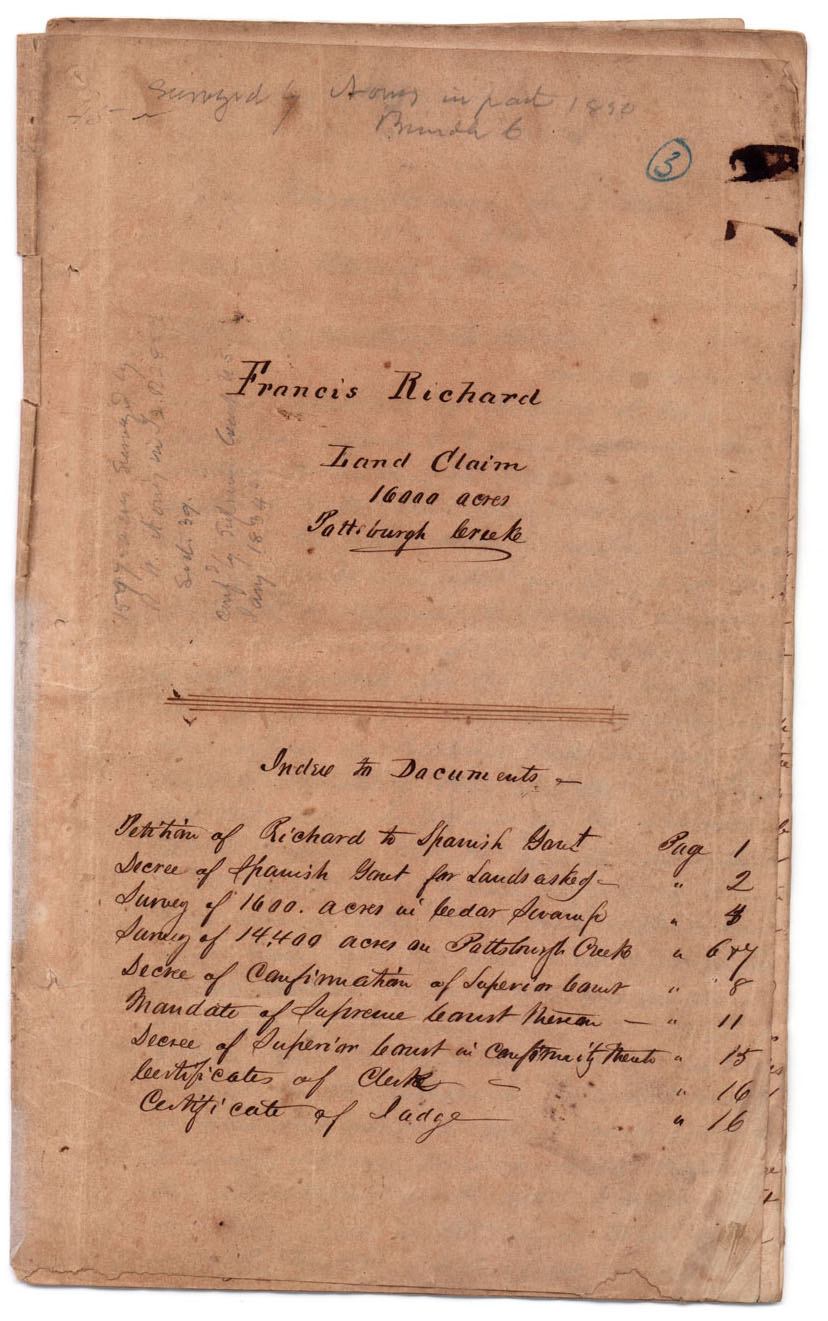 Surveyed by in part 1850
3
Francis Richard
Land Claim
16000 acres
Pattsburgh Creek
Index to Documents
Petition of Richard to Spanish Govt Page 1
Decree of Spanish Govt for Lands asked — " 2
Survey of 1600. acres in Cedar Swamp " 4
Survey of 14,400 acres on Pattsburgh Creek " 6 & 7
Decree of Confirmation of Superior Court " 8
Mandate of Supreme Court thereon — " 11
Decree of Superior Court in Conformity thereto " 15
Certificates of Clerk — " 16
Certificate of Judge " 16
1597
Sect. 39.